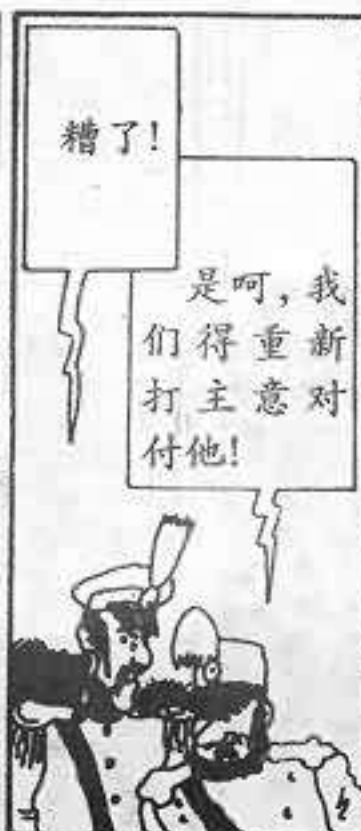 糟了!
是呵，我
们得重新
打主意对
付他!